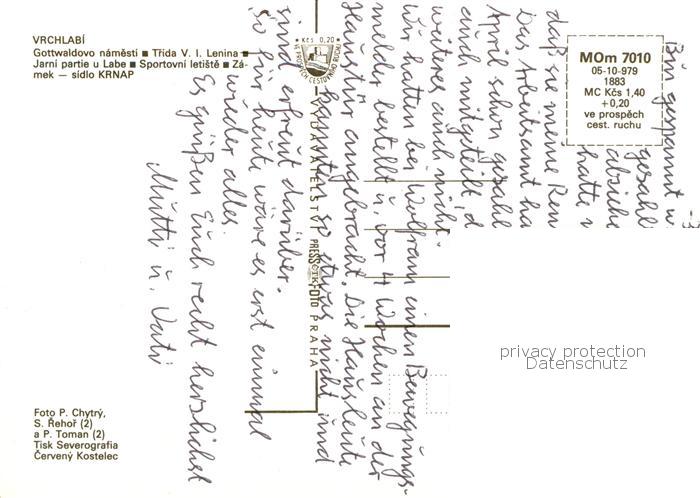 VRCHLABÍ
Gottwaldovo náměstí ■ Třída V. I. Lenina ■
Jarní partie u Labe ■ Sportovní letiště ■ Zá-
mek — sídlo KRNAP
Kčs 0,20
VE PROSPĚCH CESTOVNÍHO RUCHU
MOm 7010
05-10-979
1883
MC Kčs 1,40
+0,20
ve prospěch
cest. ruchu
VYDAVATELSTVÍ PRESSFOTO PRAHA
ČTK
Bin gespannt u.
gezahl
hatte
daß sie meine Ren
Das Arbeitsamt ha
April schon gezahl
auch mitgeteilt, d
weiteres auch nicht.
Wir hatten bei Wolfram einen Bewegungs-
melder bestellt u. vor 4 Wochen an der
Haustür angebracht. Die Hausleute
kannten so etwas nicht und
sind erfreut darüber.
So für heute wäre es erst einmal
wieder alles.
Es grüßen Euch recht herzlichst
Mutti u. Vati
privacy protection
Datenschutz
Foto P. Chytrý,
S. Řehoř (2)
a P. Toman (2)
Tisk Severografia
Červený Kostelec